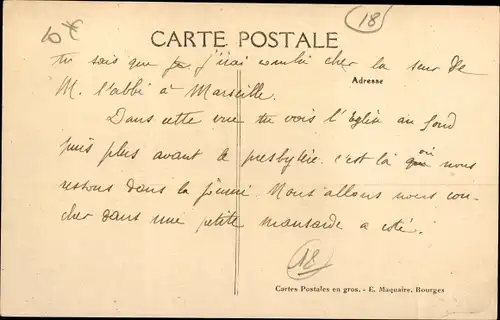 18
CARTE POSTALE
tu sais que j'irai coucher chez la sœur de
Adresse
M. l'abbé à Marseille.
Dans cette vue tu vois l'Eglise au fond
puis plus avant le presbytère. c'est là où nous
restons dans la journée. Nous allons nous cou-
cher dans une petite mansarde a coté.
18
Cartes Postales en gros. - E. Maquaire, Bourges